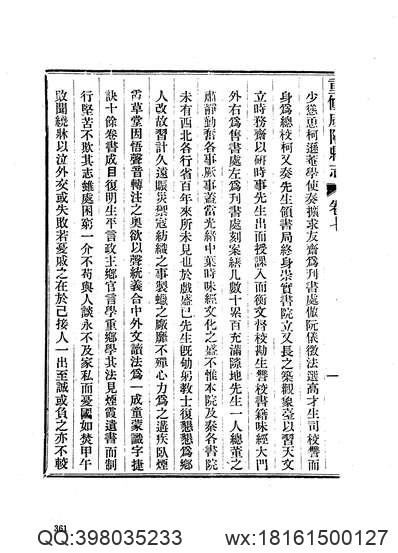 重修咸陽縣志 卷七
少懲惠柯遜菴學使奏擴求友齋爲刊書處倣阮儀徵法選高才生司校讐而
身爲總校柯又奏先生領書局終身崇實書院立又長之築觀象臺以習天文
立時務齋以研時事先生出而授課入而衡文督校勘生讐校書籍味經大門
外右爲售書處左爲刋書處刻案槈几數十累百充滿隙地先生一人總董之
肅靜勤奮各事厥事蓋當光緒中葉時味經文化之盛不惟本院及秦各書院
未有西北各行省百年來所未見也於戲盛已先生旣劬躬敎士復懇懇爲鄉
人改故習計久遠賑災禦寇紡織之事製蠟之廠靡不殫心力爲之遘疾臥煙
霞草堂因悟聲音轉注之奧欲以聲統義合中外文讀法爲一成童蒙識字捷
訣十餘卷書成目復明生平言政主鄉官言學重鄉學其法見煙霞遺書而制
行堅苦不欺其志雖處困窮一介不苟與人談永不及家私而憂國如焚甲午
敗聞繞牀以泣外交或失敗若憂戚之在於己接人一出至誠或負之亦不較
361
QQ:398035233
wx:18161500127